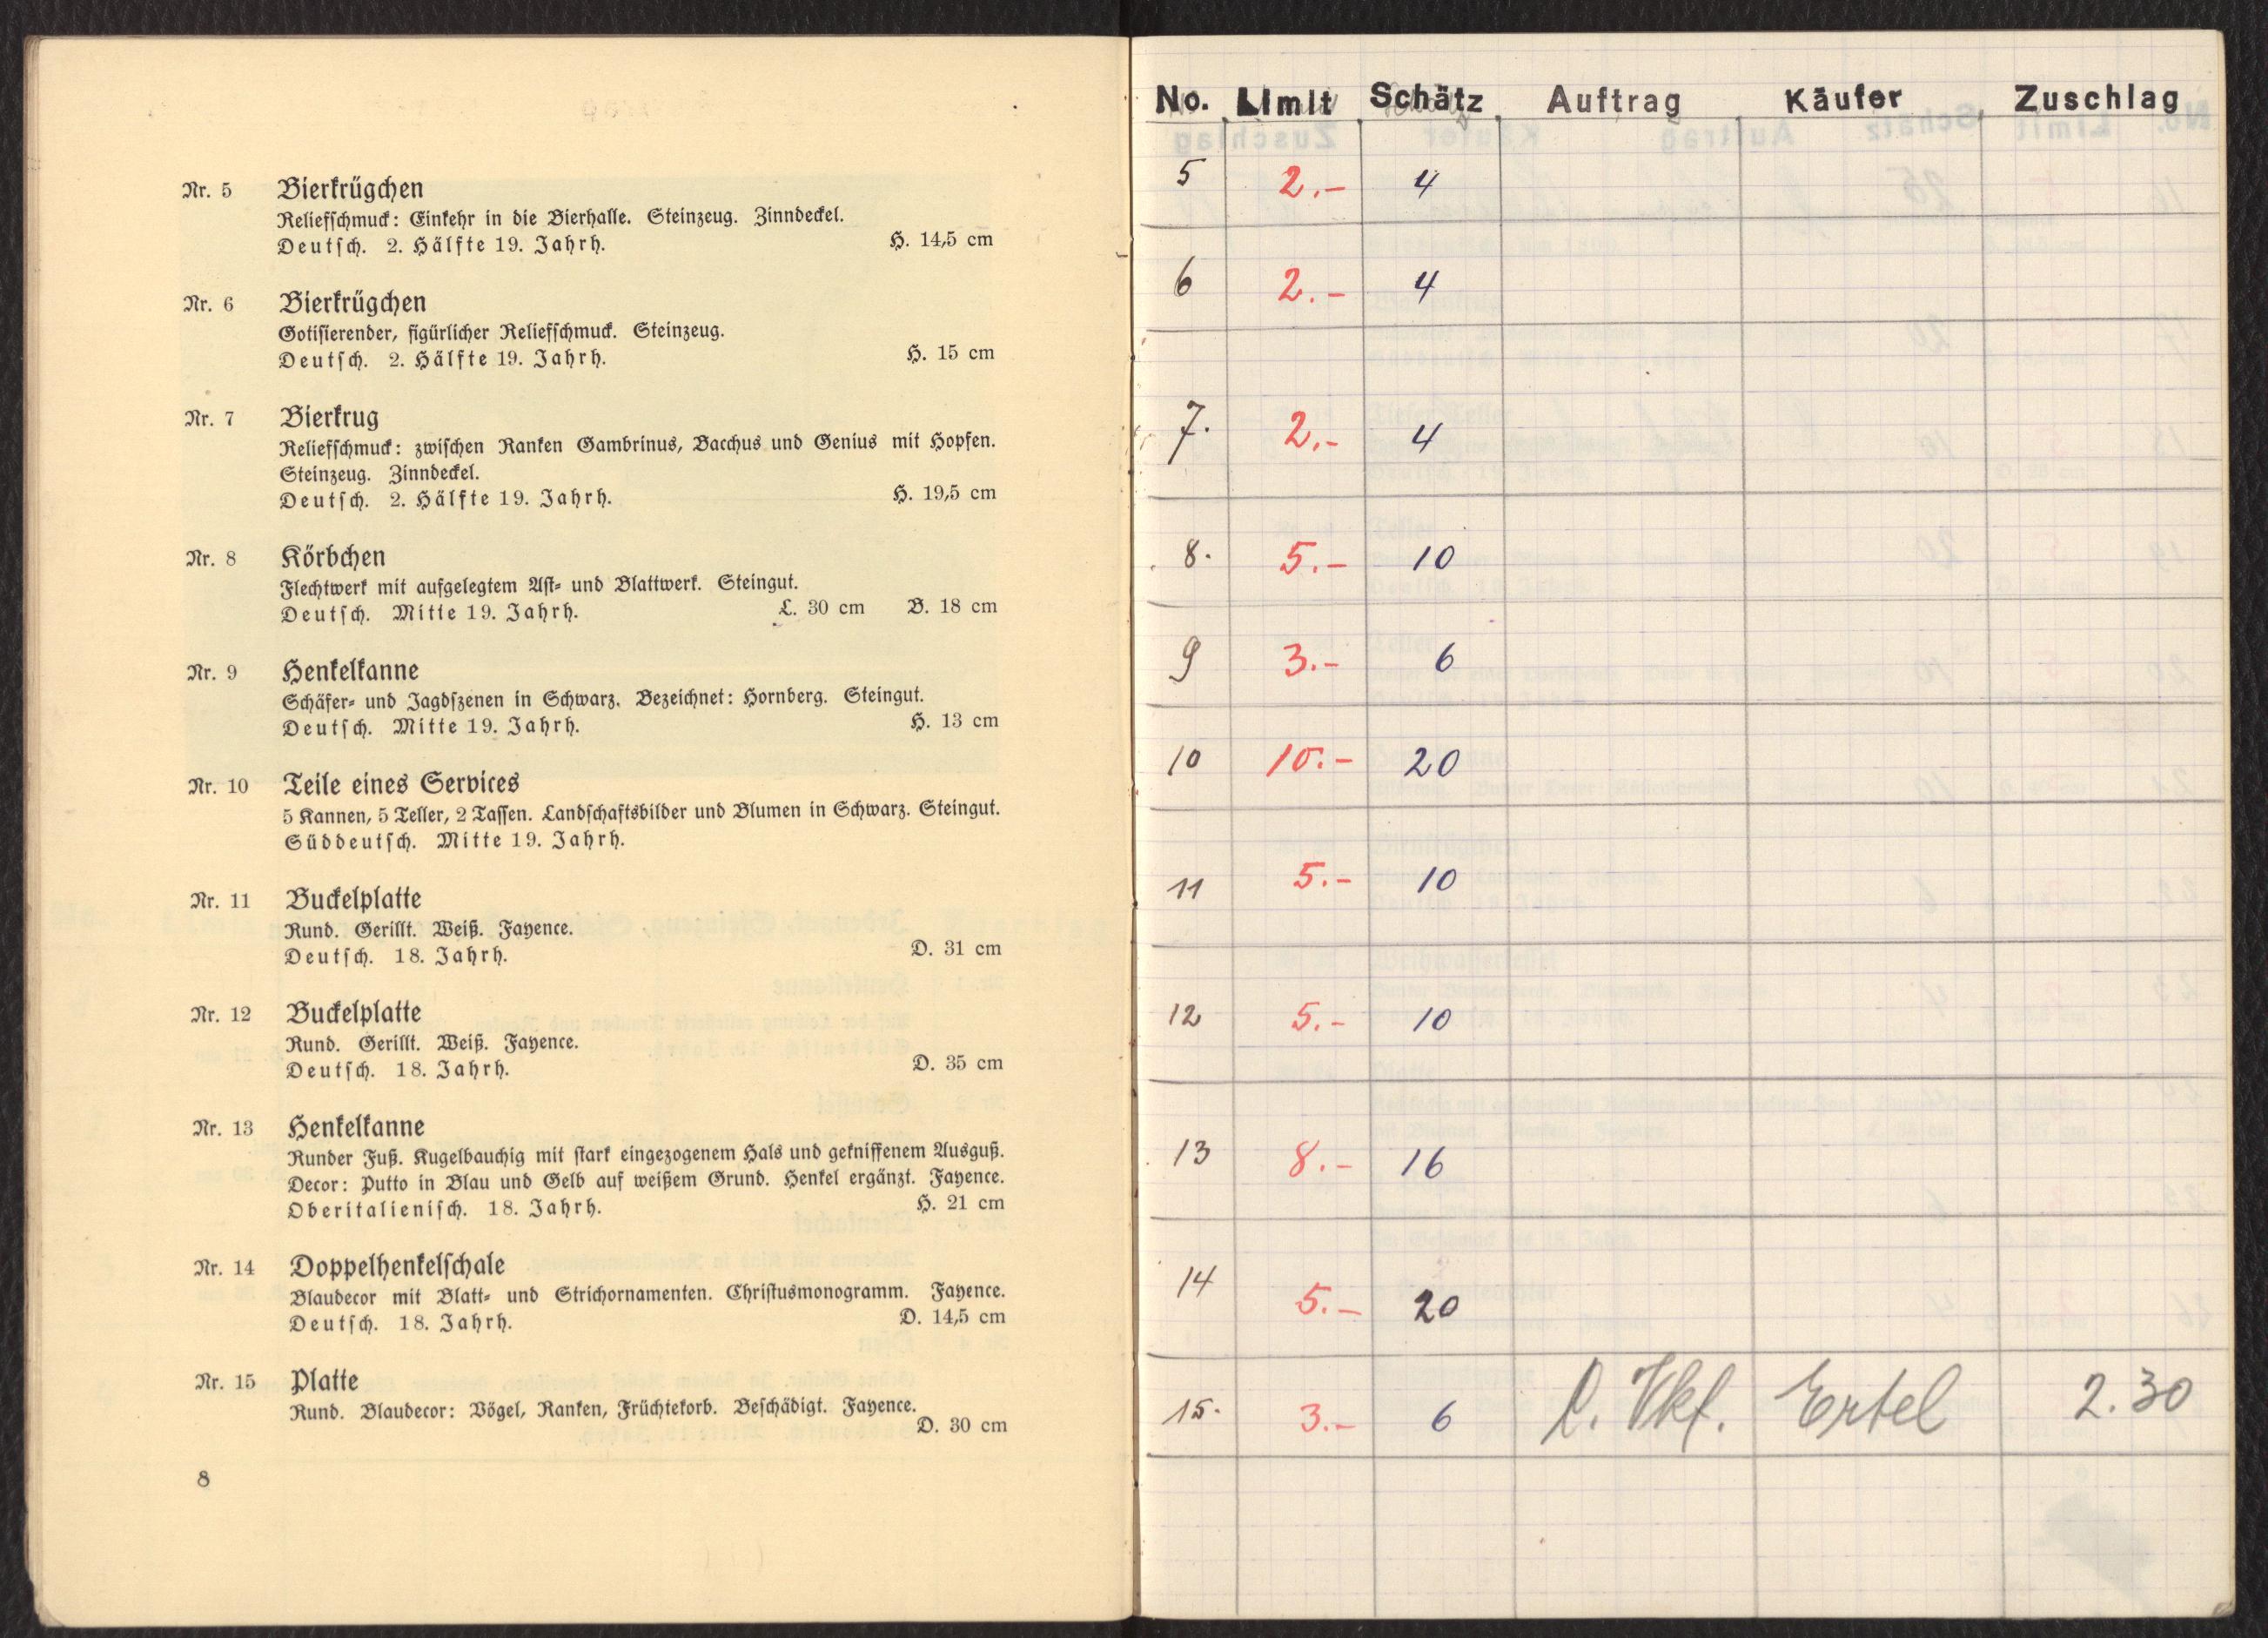 Nr. 5 Bierkrügchen
Reliefschmuck: Einkehr in die Bierhalle. Steinzeug. Zinndeckel.
Deutsch. 2. Hälfte 19. Jahrh. H. 14,5 cm
Nr. 6 Bierkrügchen
Gotisierender, figürlicher Reliefschmuck. Steinzeug.
Deutsch. 2. Hälfte 19. Jahrh. H. 15 cm
Nr. 7 Bierkrug
Reliefschmuck: zwischen Ranken Gambrinus, Bacchus und Genius mit Hopfen.
Steinzeug. Zinndeckel.
Deutsch. 2. Hälfte 19. Jahrh. H. 19,5 cm
Nr. 8 Körbchen
Flechtwerk mit aufgelegtem Ast- und Blattwerk. Steingut.
Deutsch. Mitte 19. Jahrh. L. 30 cm B. 18 cm
Nr. 9 Henkelkanne
Schäfer- und Jagdszenen in Schwarz. Bezeichnet: Hornberg. Steingut.
Deutsch. Mitte 19. Jahrh. H. 13 cm
Nr. 10 Teile eines Services
5 Kannen, 5 Teller, 2 Tassen. Landschaftsbilder und Blumen in Schwarz. Steingut.
Süddeutsch. Mitte 19. Jahrh.
Nr. 11 Buckelplatte
Rund. Gerillt. Weiß. Fayence.
Deutsch. 18. Jahrh. D. 31 cm
Nr. 12 Buckelplatte
Rund. Gerillt. Weiß. Fayence.
Deutsch. 18. Jahrh. D. 35 cm
Nr. 13 Henkelkanne
Runder Fuß. Kugelbauchig mit stark eingezogenem Hals und gekniffenem Ausguß.
Decor: Putto in Blau und Gelb auf weißem Grund. Henkel ergänzt. Fayence.
Oberitalienisch. 18. Jahrh. H. 21 cm
Nr. 14 Doppelhenkelschale
Blaudecor mit Blatt- und Strichornamenten. Christusmonogramm. Fayence.
Deutsch. 18. Jahrh. D. 14,5 cm
Nr. 15 Platte
Rund. Blaudecor: Vögel, Ranken, Früchtekorb. Beschädigt. Fayence.
D. 30 cm
8
No. Limit Schätz Auftrag Käufer Zuschlag
5 2.- 4
6 2.- 4
7. 2.- 4
8. 5.- 10
9 3.- 6
10 10.- 20
11 5.- 10
12 5.- 10
13 8.- 16
14 5.- 20
15. 3.- 6 l. Vkf. Ertel 2.30